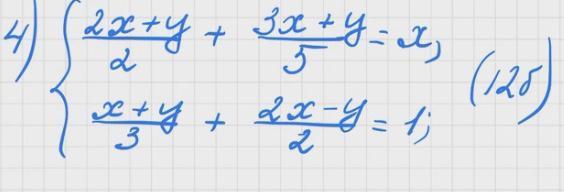 4) { (2x+y)/2 + (3x+y)/5 = x,
(x+y)/3 + (2x-y)/2 = 1;
(12б)